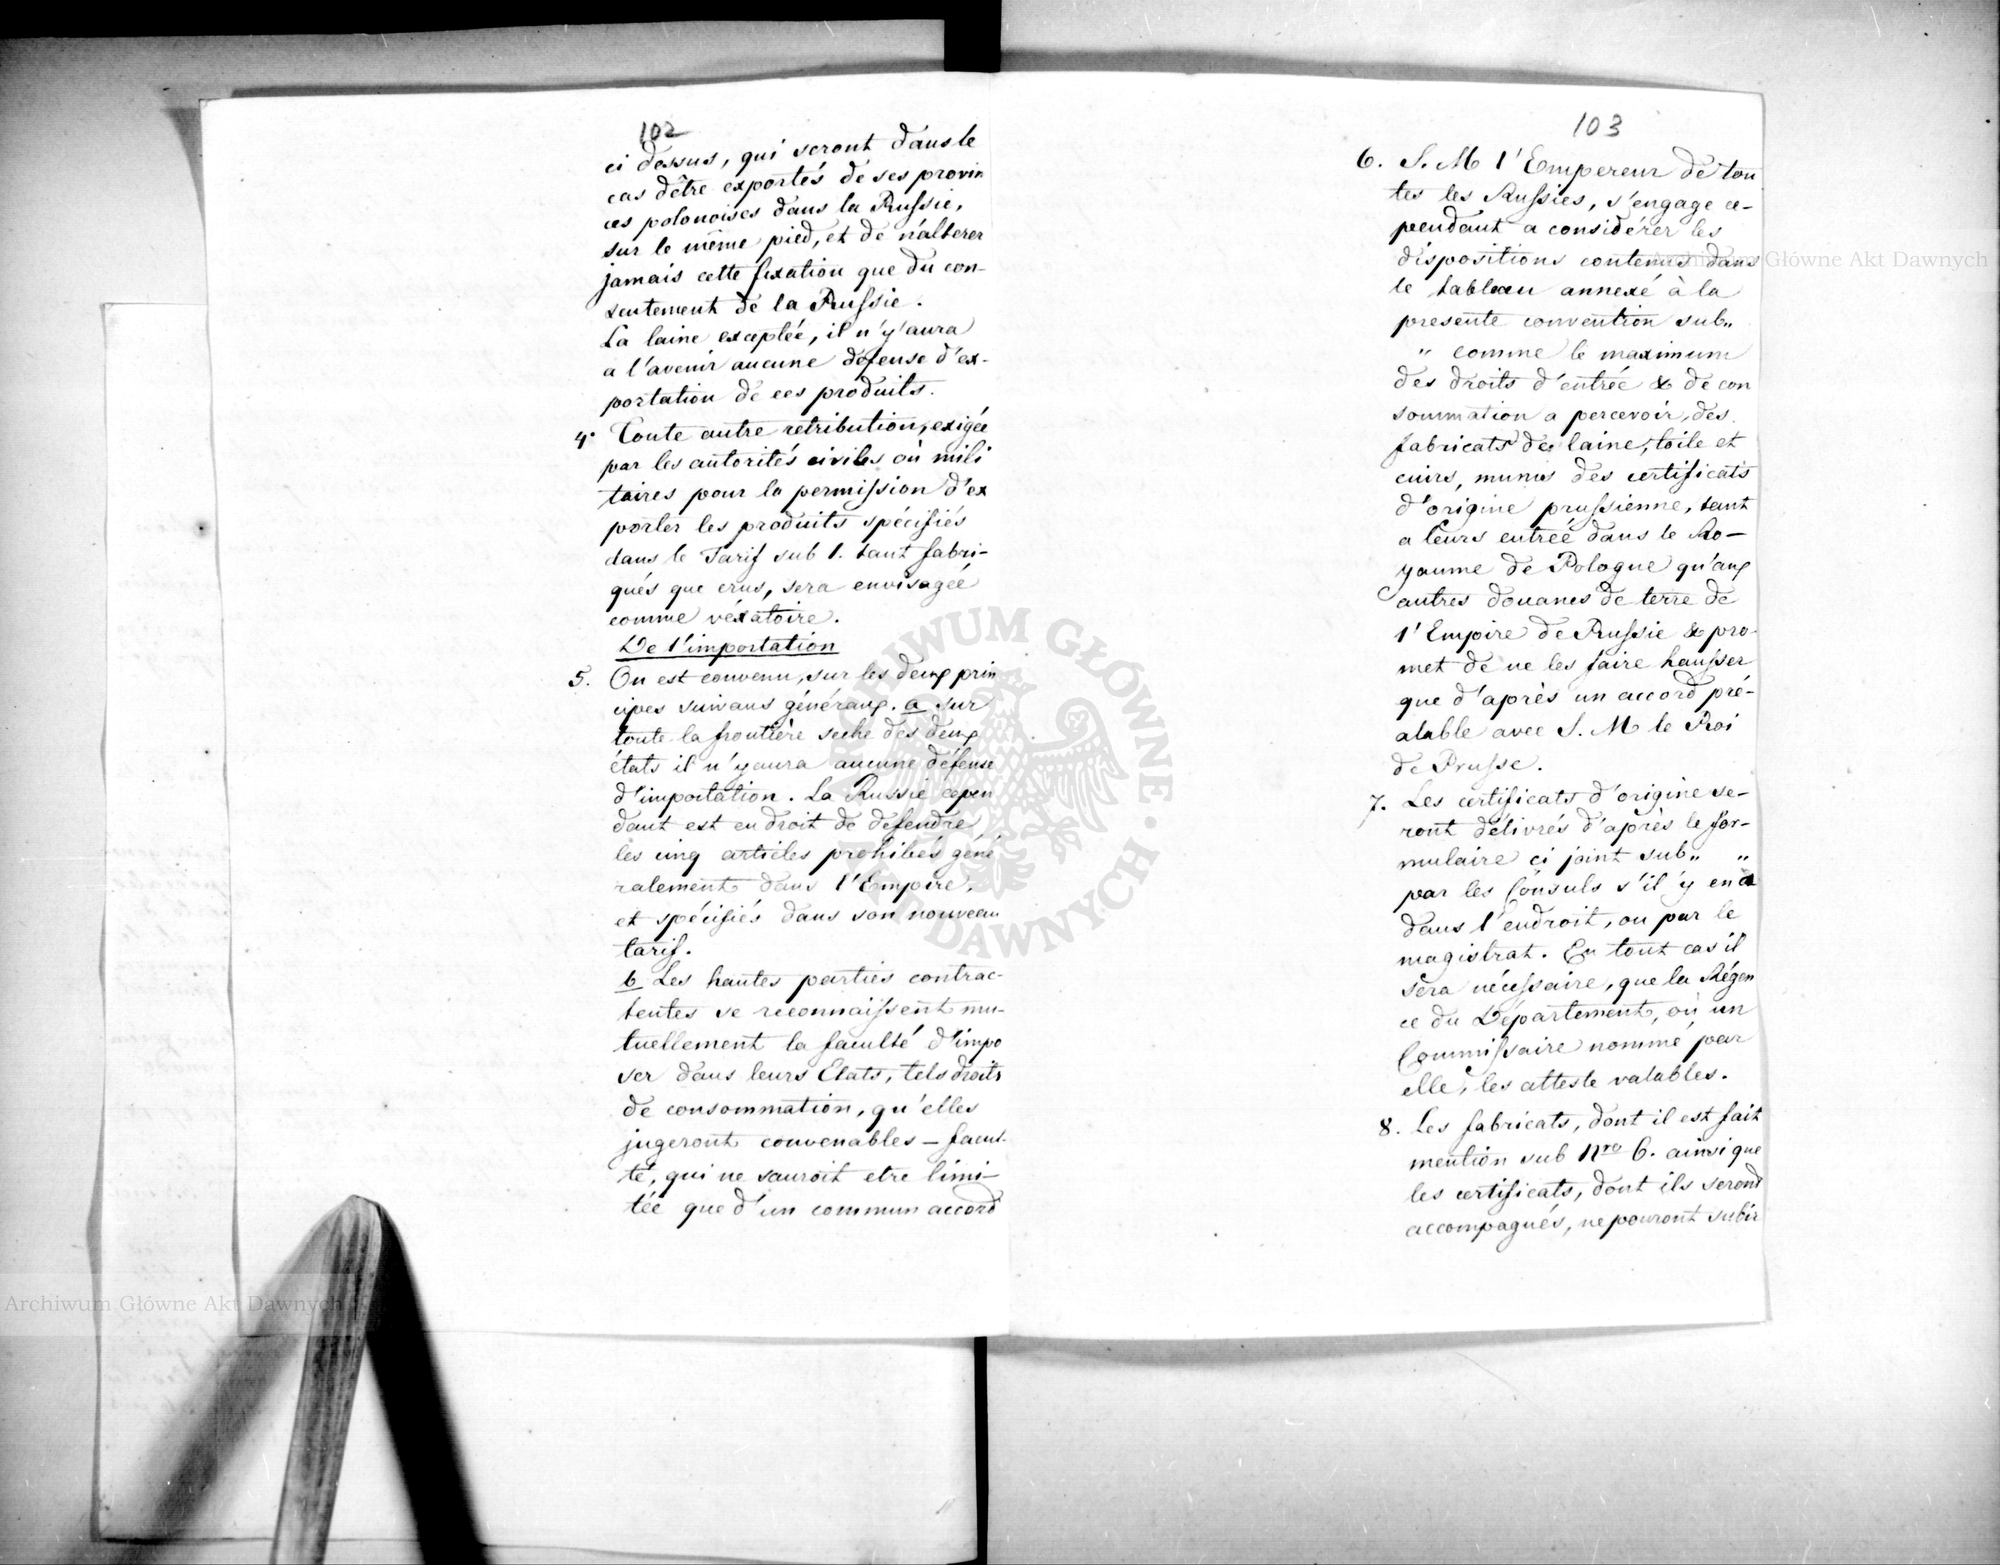 102
ci dessus, qui seront dans le
cas d'être exportés de ses provin
ces polonoises dans la Russie,
sur le même pied, et de n'alterer
jamais cette fixation que du con-
sentement de la Russie.
La laine exceptée, il n'y aura
a l'avenir aucune défense d'ex-
portation de ces produits.
4. Toute autre retribution, exigée
par les autorités civiles où mili
taires pour la permission d'ex
porter les produits spécifiés
dans le Tarif sub 1. tant fabri-
qués que crus, sera envisagée
comme véxatoire.
De l'importation
5. On est convenu, sur les deux prin
cipes suivans généraux. a sur
toute la frontière seche des deux
états il n'y aura aucune défense
d'importation. La Russie cepen
dant est en droit de défendre
les cinq articles prohibés géné
ralement dans l'Empire,
et spécifiés dans son nouveau
tarif.
b Les hautes parties contrac-
tentes se reconnaissent mu-
tuellement la faculté d'impo
ser dans leurs Etats, tels droits
de consommation, qu'elles
jugeront convenables – facul-
té, qui ne sauroit etre limi-
tée que d'un commun accord
103
6. S. M l'Empereur de tou
tes les Russies, s'engage ce-
pendant a considérer les
dispositions contenus dans
le tableau annexé à la
presente convention sub„
„ comme le maximum
des droits d'entrée & de con
sommation a percevoir, des
fabricats de laine, toile et
cuirs, munis des certificats
d'origine prussienne, tant
a leurs entréé dans le Ro-
yaume de Pologne qu'aux
autres douanes de terre de
l'Empire de Russie & pro-
met de ne les faire hausser
que d'après un accord pré-
alable avec S. M le Roi
de Prusse.
7. Les certificats d'origine se-
ront délivrés d'après le for-
mulaire ci joint sub„ „
par les Consuls s'il y en a
dans l'endroit, ou par le
magistrat. En tout cas il
sera nécessaire, que la Régen
ce du Département, où un
Commissaire nommé par
elle, les atteste valables.
8. Les fabricats, dont il est fait
mention sub Nro 6. ainsi que
les certificats, dont ils seront
accompagnés, ne pouront subir
Archiwum Główne Akt Dawnych
ARCHIWUM GŁÓWNE AKT DAWNYCH
Archiwum Główne Akt Dawnych